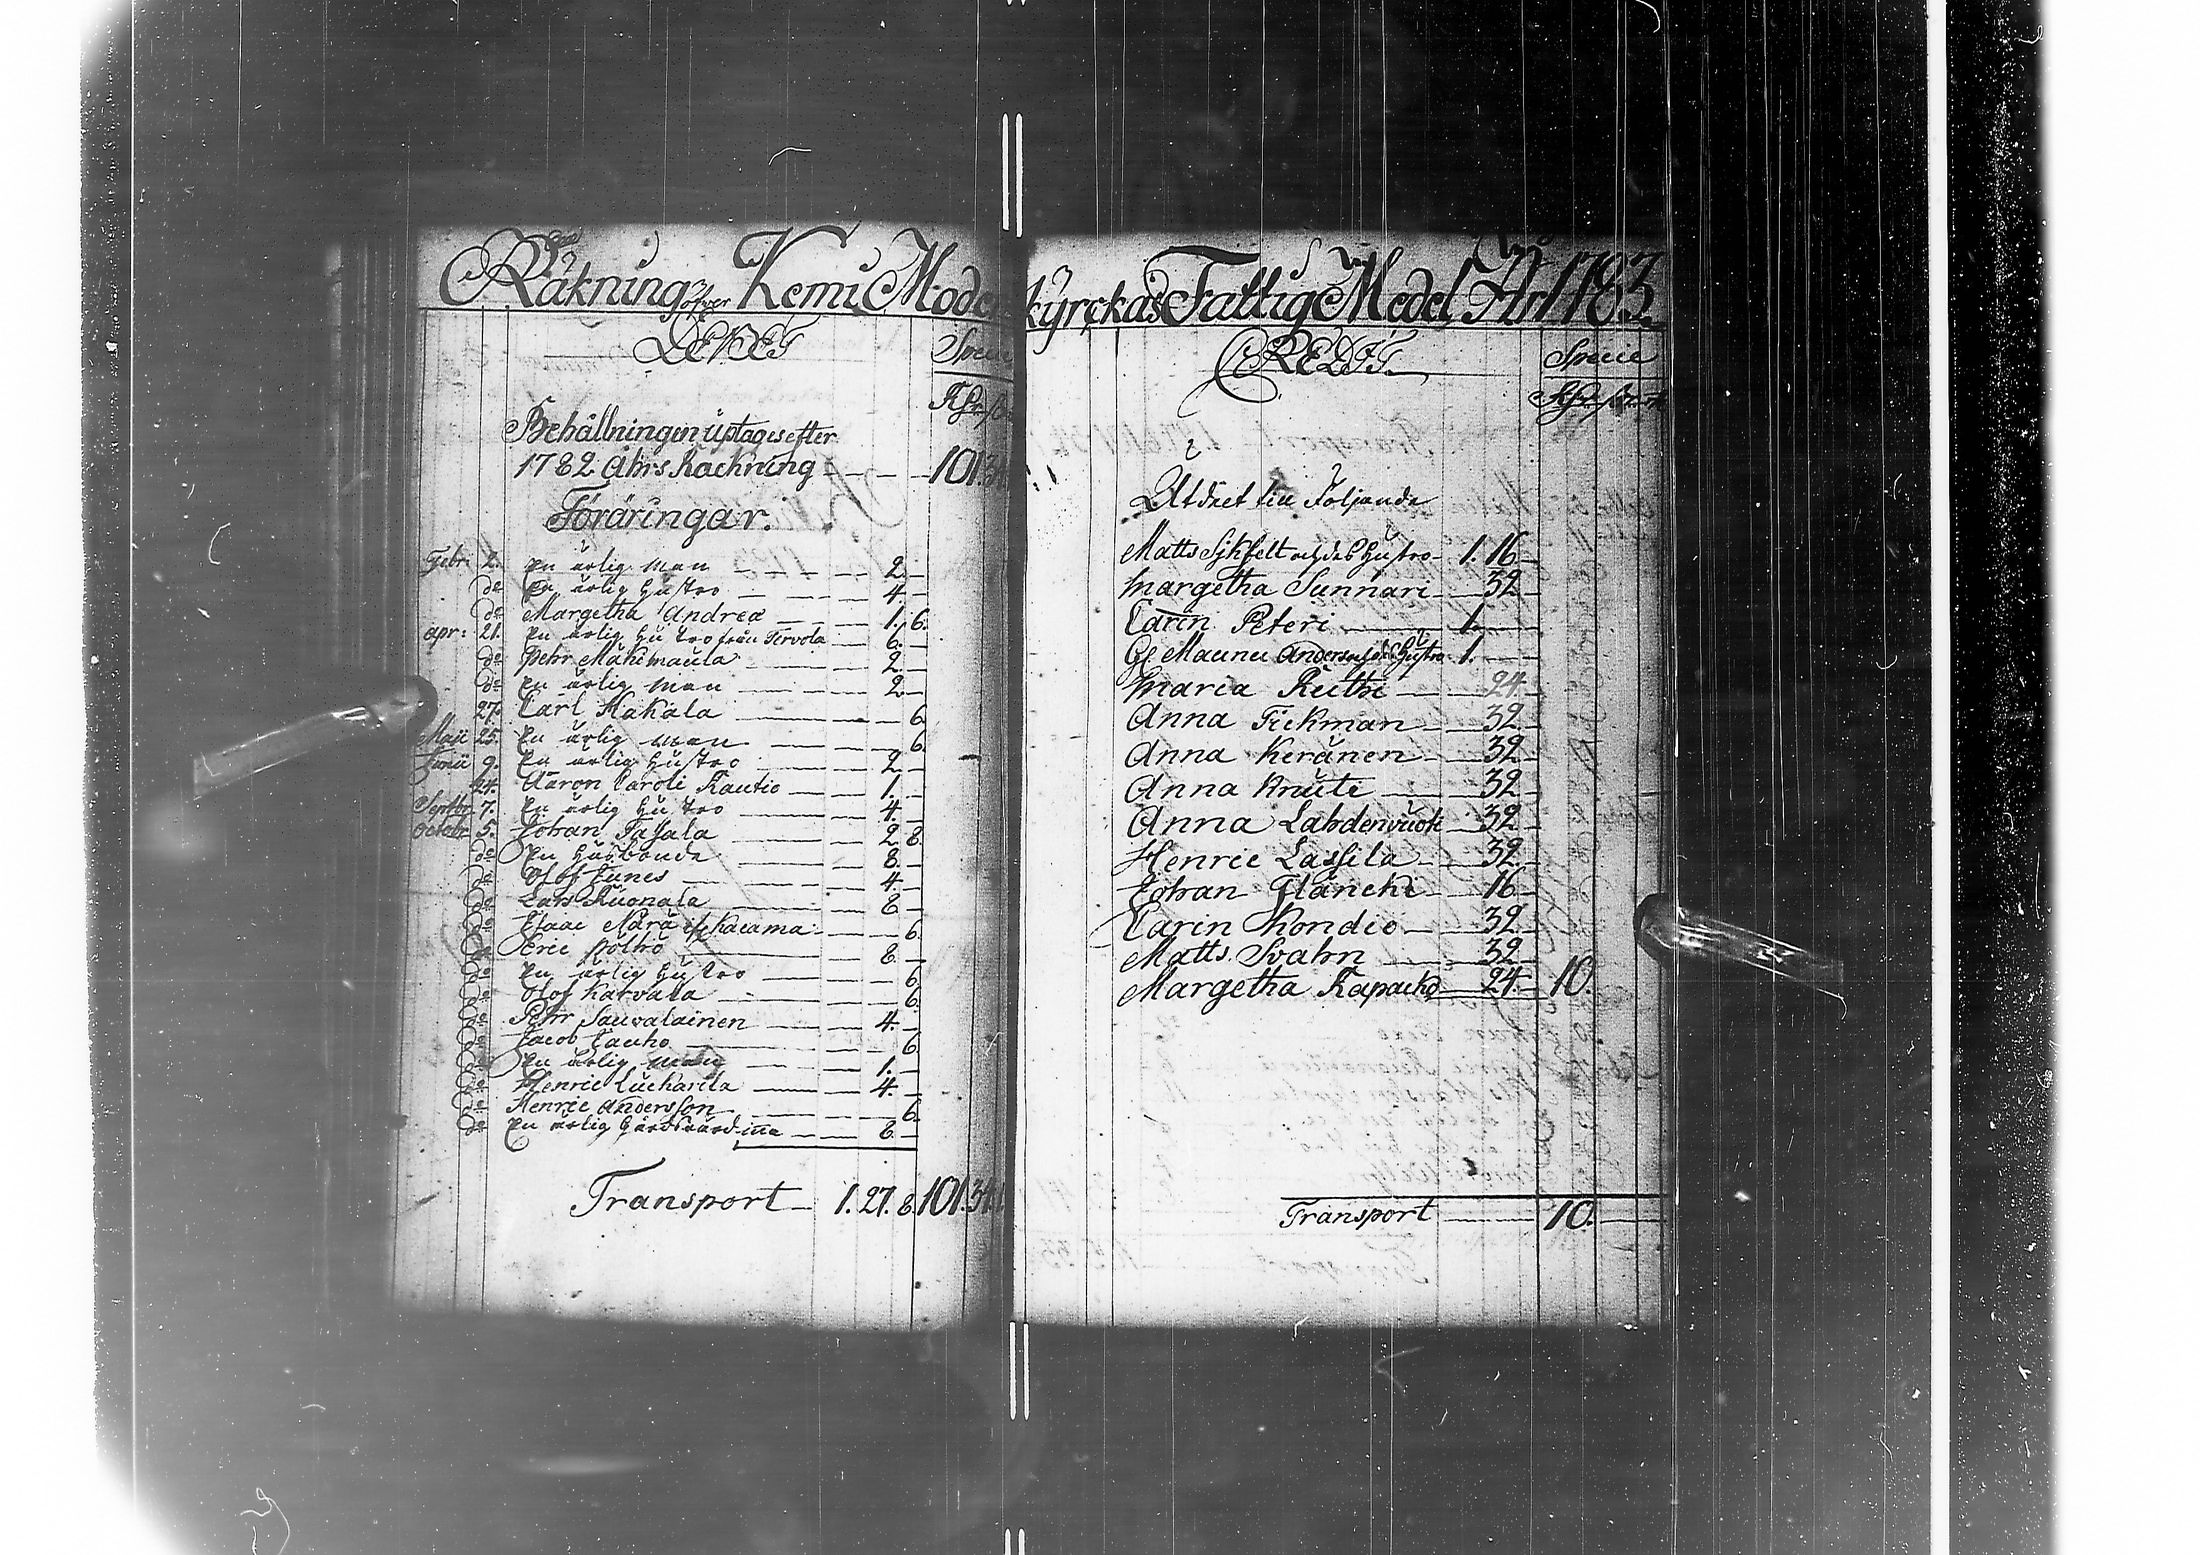 Räkning öfver Kemi Moder
DEBET
Specie
Behållningen uptages efter
1782 Åhrs Räckning — — 101.31
Föräringar.
Febr: 2. En ärlig Man — — 2. —
do En ärlig Hustro — — 4. —
do Margetha Andrea — — 1. 6.
apr: 21. En ärlig Hustro från Tervola — 6. —
do Pehr Mäkimaula — — 2. —
do En ärlig Man — — 2. —
27. Carl Kakala — — 6.
Maii 25. En ärlig man — — 6.
Junii 9. En ärlig Hustro — — 2. —
24. Aaron Caroli Rautio — — 1. —
Septbr 7. En ärlig Hustro — — 4. —
Octobr 5. Johan Tasala — — 2. 8.
do En Husbonde — — 8. —
do Olof Junes — — 4. —
do Lars Ruonala — — 8. —
do Isaac Närä — 6.
do Eric Pölhö — — 8. —
do En ärlig Hustro — — 6
do Olof Karvala — — 6.
do Pehr Sauvalainen — — 4. —
do Jacob Cauho — — 6
do En ärlig Man — — 1. —
do Henric Lucharila — — 4. —
do Henric Andersson — — 6.
do En ärlig Gårdsvärdinna — — 8. —
Transport — 1. 27. 8. 101.31
kyrckas Fattige Medel för År 1783
CREDIT.
Specie
Utdelt till Följande
Matts Sjkfelt och des Hustro — 1. 16. —
Margetha Sunnari — 32. —
Carin Peteri — 1. —
Gl Maunu Anderss och des Hustro 1. —
Maria Ruthi — 24. —
Anna Fickman — 32. —
Anna Keränen — 32. —
Anna Knuuti — 32. —
Anna Lahdenvuoti — 32. —
Henric Lassila — 32. —
Johan Jlänchi — 16. —
Carin Kondio — 32. —
Matts Svahn — 32. —
Margetha Kapacho — 24. — 10.
Transport — 10. —